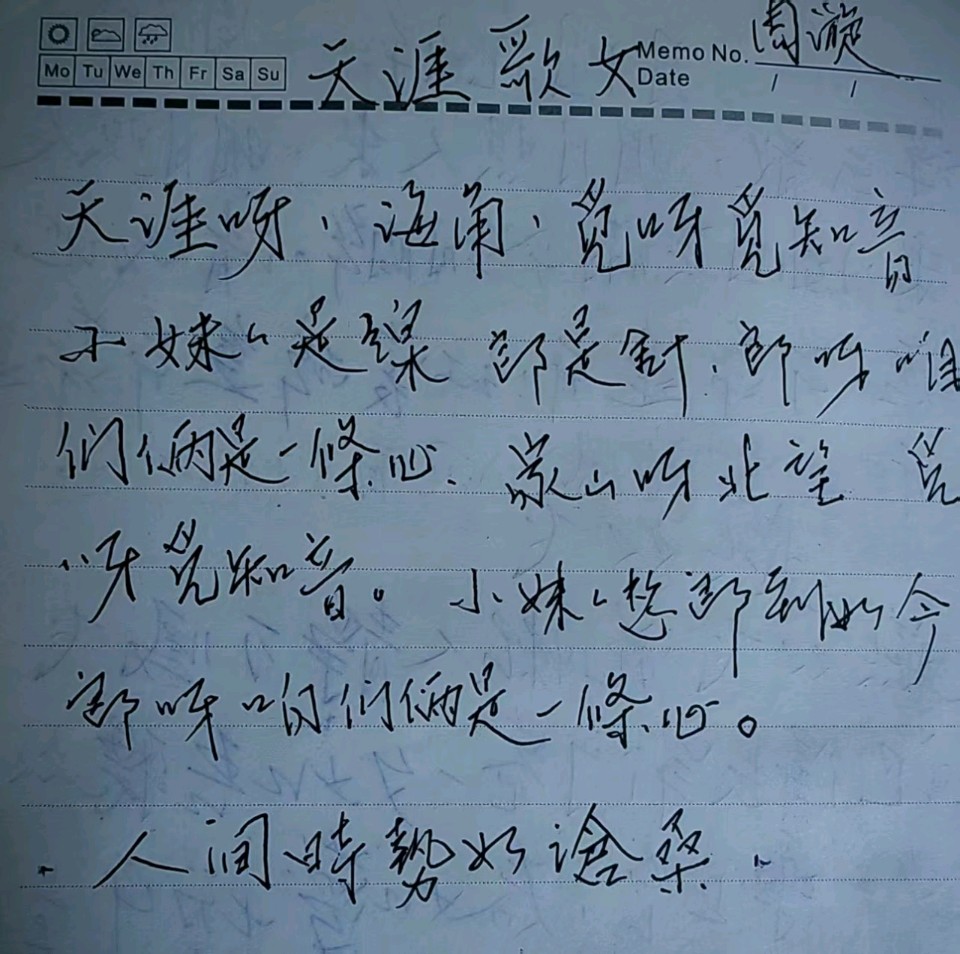 Mo Tu We Th Fr Sa Su
天涯歌女
Memo No. 周璇
Date / /
天涯呀、海角、觅呀觅知音
小妹〃是線 郎是針、郎呀咱
们俩是一條心、家山呀北望 觅
呀觅知音。小妹〃想郎到如今
郎呀咱们俩是一條心。
人间時勢如滄桑